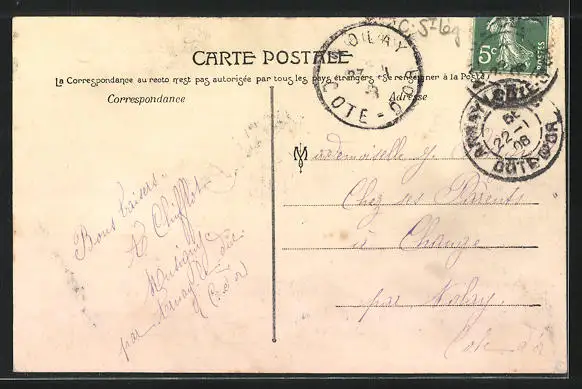 CARTE POSTALE
La Correspondance au recto n'est pas autorisée par tous les pays étrangers (Se renseigner à la Poste)
Correspondance
Adresse
NOLAY
COTE-D'OR
5c
POSTES
ARNAY
22-1
08
COTE D'OR
Mademoiselle
Chez ses Parents
à Change
par Nolay
Cote d'or
Bons baisers
Musigny
par Arnay le duc